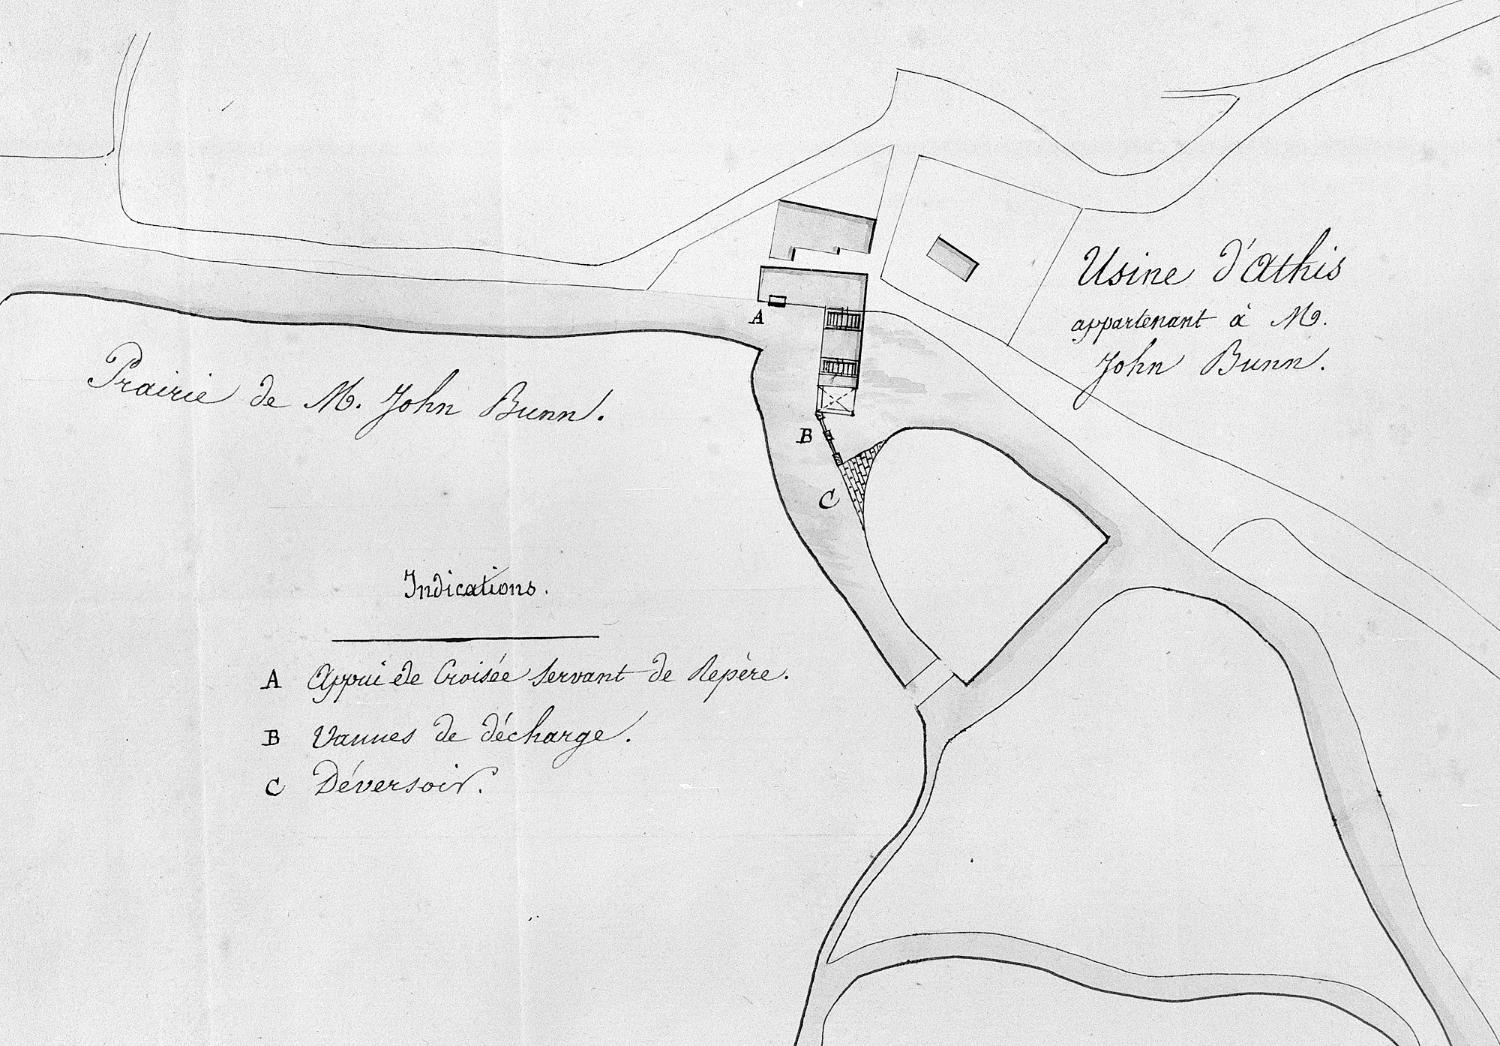 Usine d'Athis
appartenant à M.
John Bunn.
A
Prairie de M. John Bunn.
B
C
Indications.
A Appui de Croisée servant de Repère.
B Vannes de décharge.
C Déversoir.